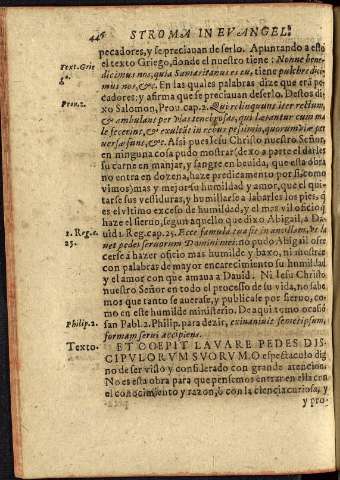 446 STROMA IN EVANGEL.
pecadores, y se preciauan de serlo. Apuntando a esto
el texto Griego, donde el nuestro tiene: Nonne bene
dicimus nos, quia Samaritanus es tu, tiene pulchre dici
mus nos, &c. En las quales palabras dize que erã pe
cadores: y afirma que se preciauan deserlo. Destos di
xo Salomon, Prou. cap. 2. Qui relinquuns iter rectum,
& ambulant per vias tenebrosas, qui lætantur cum ma
le fecerint, & exultãt in rebus pessimis, quorum viæ per
uersæ sunt, &c. Assi pues Iesu Christo nuestro Señor,
en ninguna cosa pudo mostrar (dexo a parte el darles
su carne en manjar, y sangre en beuida, que esta obra
no entra en dozena, haze predicamento por si, como
vimos) mas y mejor su humildad y amor, que el qui-
tarse sus vestiduras, y humillarse a labarles los pies, q̃
es el vltimo excesso de humildad, y el mas vil oficio q̃
haze el sieruo, segun aquello que dixo Abigail, a Da
uid 1. Reg. cap. 25. Ecce famula tua sit in ancillam, vt la
net pedes seruorum Domini mei: no pudo Abigail ofre
cerse a hazer oficio mas humilde y baxo, ni mostrar
con palabras de mayor encarecimiento su humildad
y el amor con que amaua a Dauid. Ni Iesu Christo
nuestro Señor en todo el processo de su vida, no sabe
mos que tanto se auerase, y publicase por sieruo, co-
mo en este humilde ministerio. De aqui tomo ocasió
san Pabl. 2. Philip. para dezir, exinaniuit semetipsum,
formam serui accipiens.
ET COEPIT LAVARE PEDES DIS-
CIPVLORVM SVORVM. O espectaculo dig
no de ser visto y considerado con grande atencion.
No es esta obra para que pensemos entrar en ella con
el conocimiento y razon, ò con la ciencia curiosa, y
y pro-
Text. Grie
g°.
Prou. 2.
1. Reg. c.
25.
Philip. 2.
Texto.